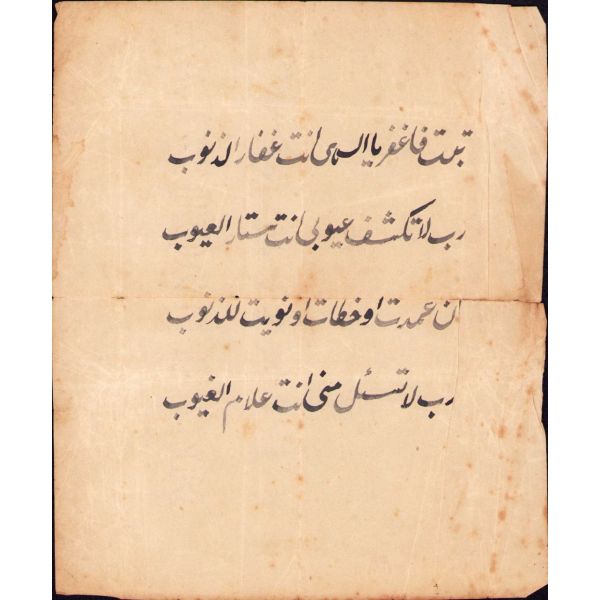 تبت فاغفر يا الهى انت غفار الذنوب
رب لا تكشف عيوبى انت ستار العيوب
ان عمدت او خطات او نويت للذنوب
رب لا تسئل منى انت علام الغيوب